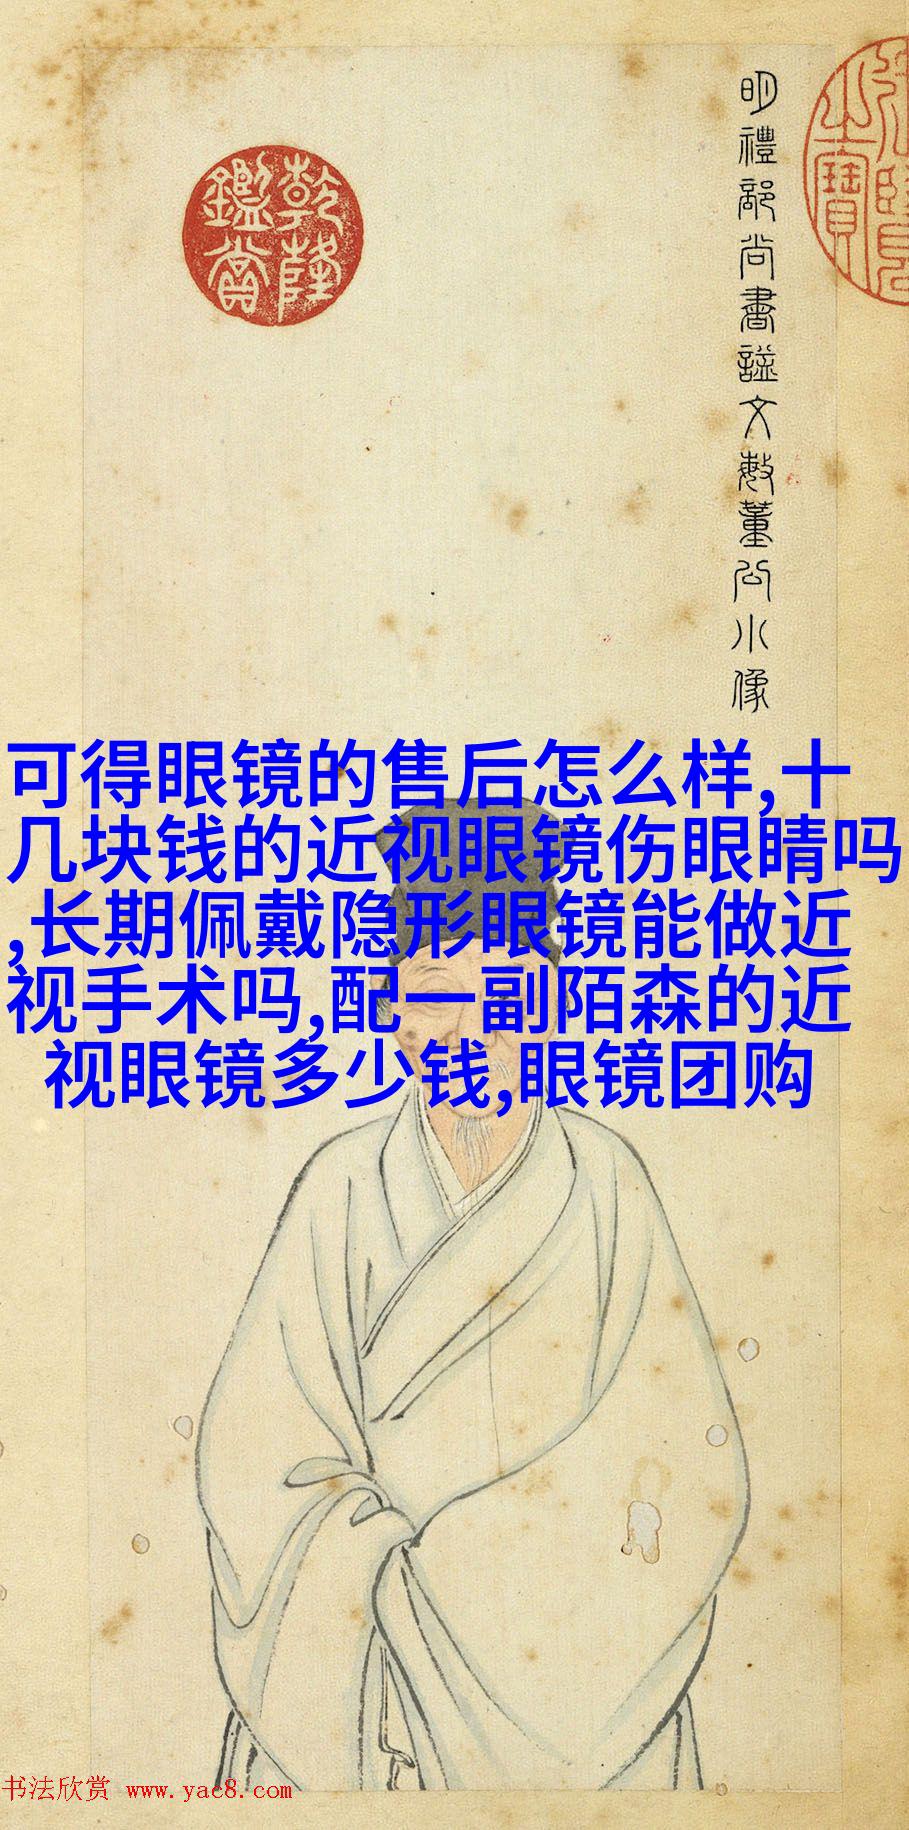 明禮部尚書謚文敏董公小像
乾隆
鑑賞
之寶
可得眼镜的售后怎么样,十
几块钱的近视眼镜伤眼睛吗
,长期佩戴隐形眼镜能做近
视手术吗,配一副陌森的近
视眼镜多少钱,眼镜团购
书法欣赏 www.yac8.com